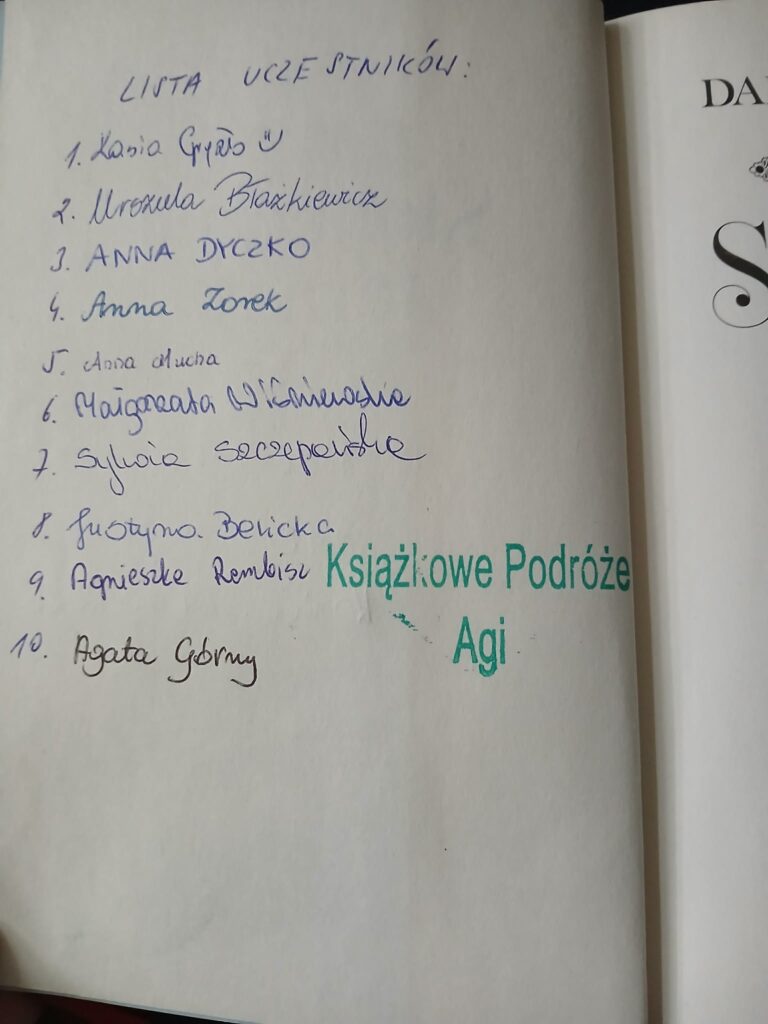 LISTA UCZESTNIKÓW:
1. Kasia Gryzło
2. Urszula Błażkiewicz
3. ANNA DYCZKO
4. Anna Zorek
5. Anna Mucha
6. Małgorzata Wiśniewska
7. Sylwia Szczepańska
8. Justyna Bericka
9. Agnieszka Rembisz
10. Agata Górny
Książkowe Podróże
Agi
DA
S